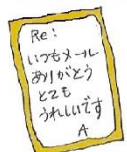 Re:
いつもメール
ありがとう
とても
うれしいです
A